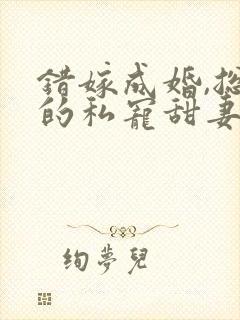 錯嫁成婚,總
的私寵甜妻
絢夢兒